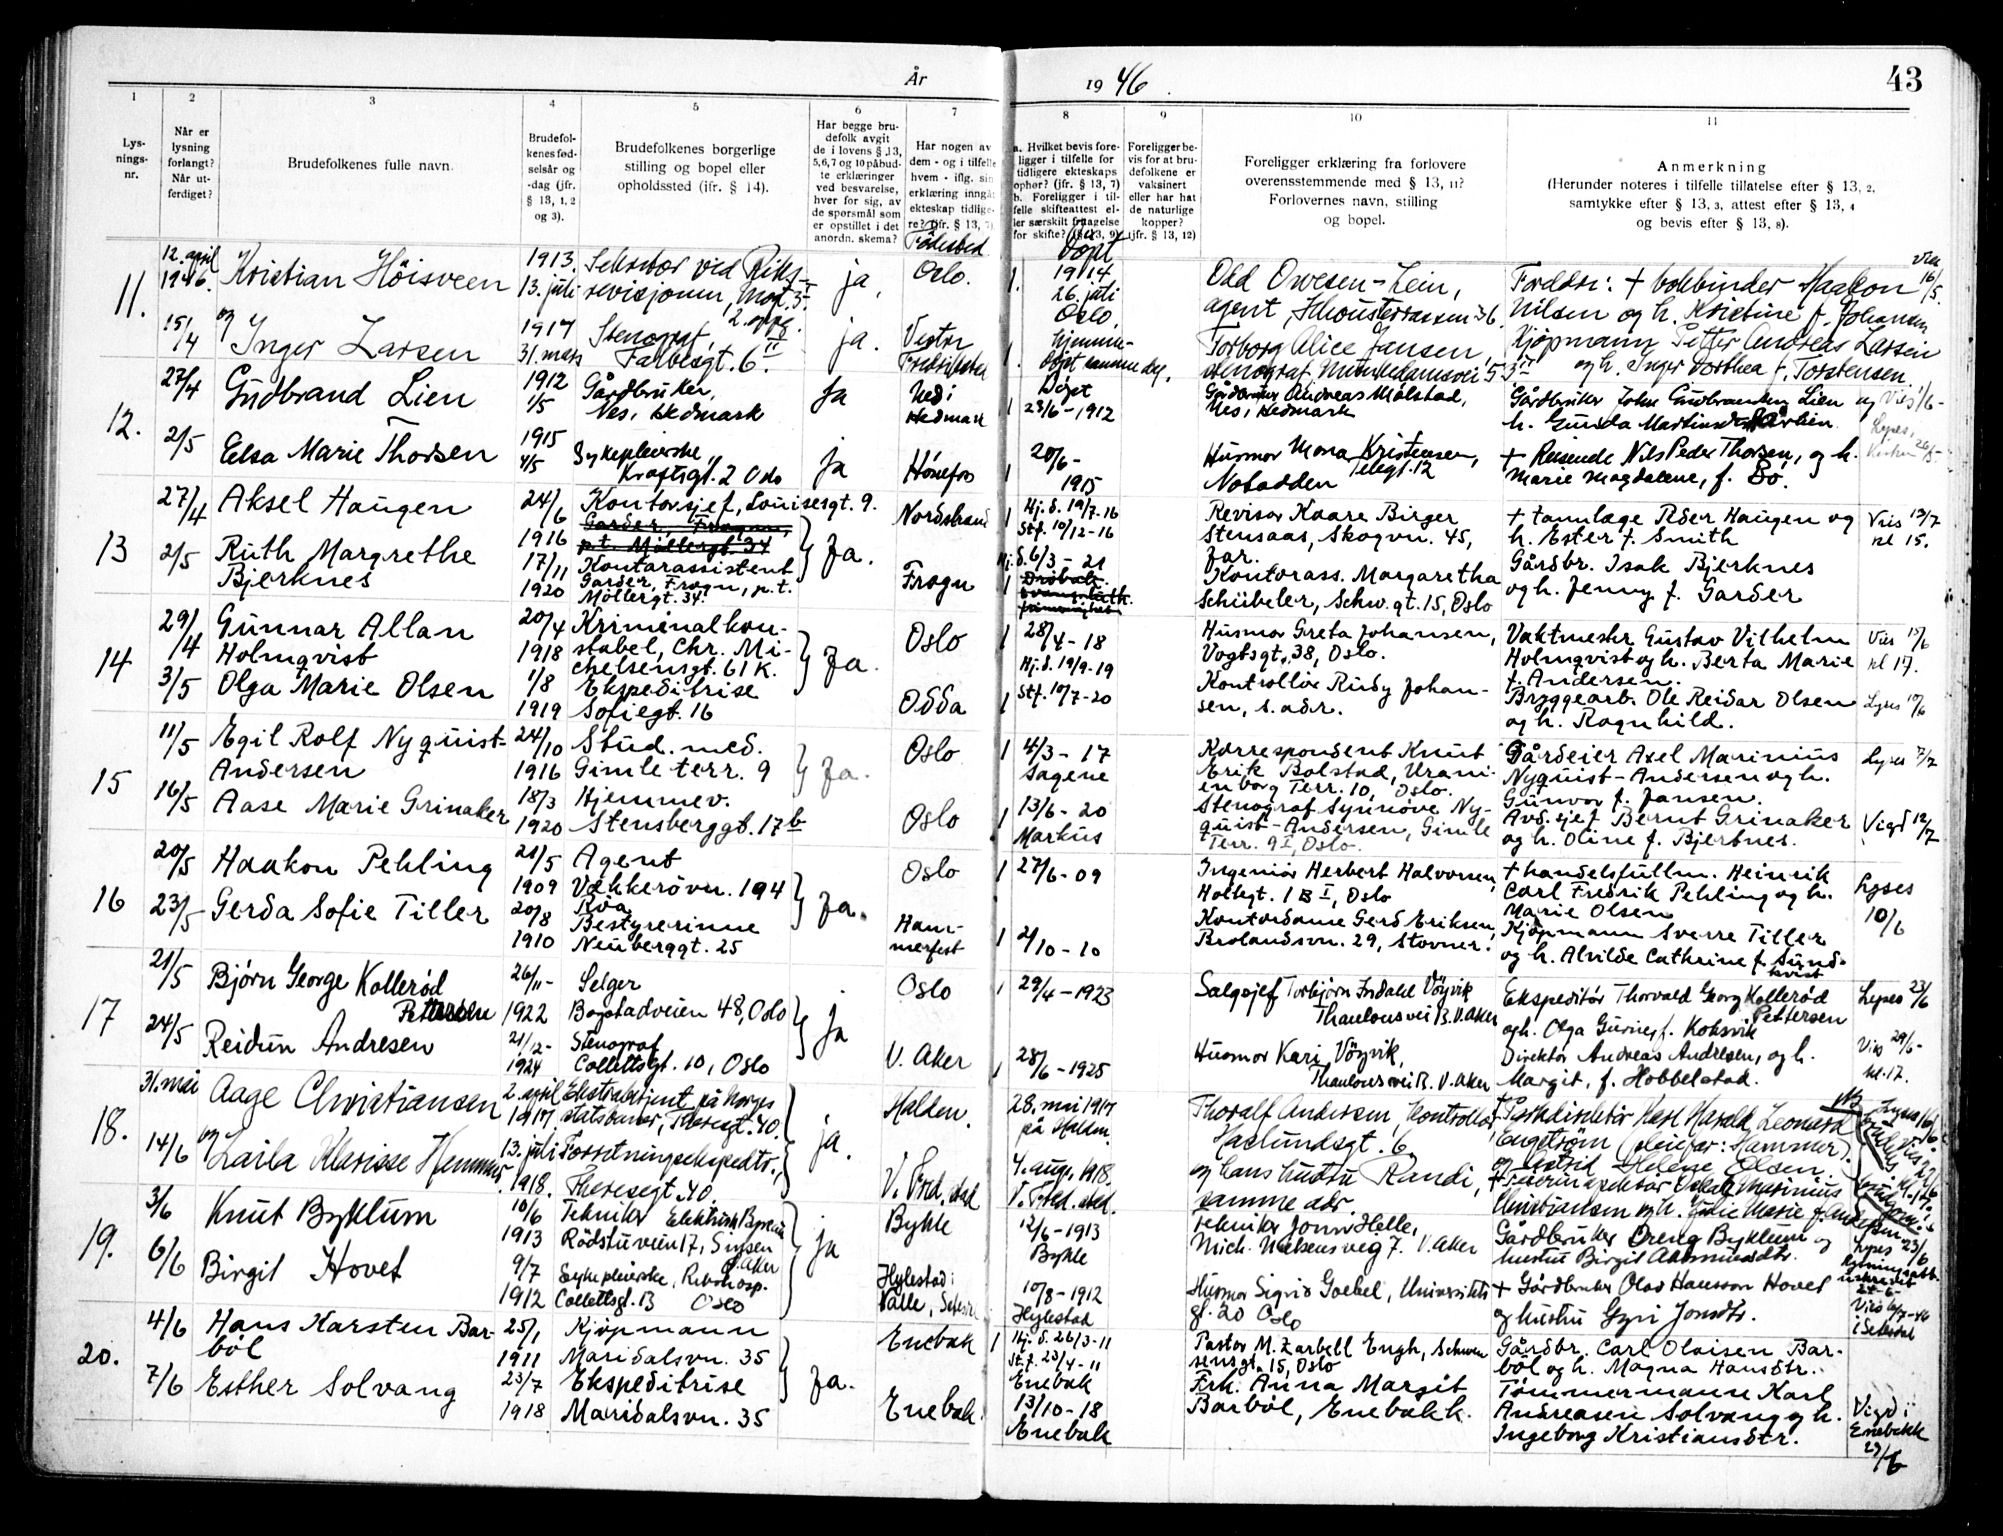 År 1946.
43
1 2 3 4 5 6 7 8 9 10 11
Lys-
nings-
nr.
Når er
lysning
forlangt?
Når ut-
ferdiget?
Brudefolkenes fulle navn.
Brudefol-
kenes fød-
selsår og
-dag (jfr.
§ 13, 1, 2
og 3).
Brudefolkenes borgerlige
stilling og bopel eller
opholdssted (ifr. § 14).
Har begge bru-
defolk avgit
de i lovens § 13,
5, 6, 7 og 10 påbud-
te erklæringer
ved besvarelse,
hver for sig, av
de spørsmål som
er opstillet i det
anordn. skema?
Har nogen av
dem - og i tilfelle
hvem - iflg. sin
erklæring inngåt
ekteskap tidlige-
re? (jfr. § 13, 7)
Fødested
a. Hvilket bevis fore-
ligger i tilfelle for
tidligere ekteskaps
ophør? (jfr. § 13, 7)
b. Foreligger i til-
felle skifteattest el-
ler særskilt
for skifte? (jfr. § 13, 9)
Døpt
Foreligger be-
vis for at bru-
defolkene er
vaksinert
eller har hat
de naturlige
kopper?
(jfr. § 13, 12)
Foreligger erklæring fra forlovere
overensstemmende med § 13, 11?
Forlovernes navn, stilling
og bopel.
Anmerkning
(Herunder noteres i tilfelle tillatelse efter § 13, 2,
samtykke efter § 13, 3, attest efter § 13, 4
og bevis efter § 13, 8).
11.
12. april
1946.
15/4
Kristian Höisveen
og
Inger Larsen
1913.
13. juli
1917
31. mars
Sekretær ved Riks-
revisjonen,
2. oppg.
Stenograf,
6 II
ja,
ja.
Oslo.
Vestre
Fredrikstad
1914
26. juli
Oslo.
hjemme-
døpt samme dag.
Odd Owesen-Lein,
agent,
36.
Torborg Alice Jansen,
stenograf, Munkedamsvei 53 III
Foreldre: + bokbinder Haakon
Nilsen og h. Kristine f. Johansen
Kjøpmann Petter Andreas Larsen
og h. Inger Dorthea f. Torstensen.
Viet
16/5.
12.
27/4
2/5
Gudbrand Lien
Elsa Marie Thorsen
1912
1/5
1915
4/5
Gårdbruker,
Nes, Hedmark
Sykepleierske,
Kraftsgt. 2 Oslo
ja
ja
Nes i
Hedmark
Hønefos
Døpt
23/6-1912
20/6-
1915
Gårdbruker Andreas Mælstad,
Nes, Hedmark
Husmor Mona Kristensen,
Telegt. 12
Notodden
Gårdbruker John Gudbrandsen Lien og
h. Gunda Martinsdtr
+ Reisende Nils Peder Thorsen, og h.
Marie Magdalene, f. Bö.
13
27/4
2/5
Aksel Haugen
Ruth Margrethe
Bjerknes
24/6
1916
17/11
1920
Kontorsjef, Louisesgt. 9.
Garder, Frogn,
p.t. Møllergt. 34
Kontorassistent
Garder, Frogn, p.t.
Møllergt. 34.
Ja.
Nordstrand
Frogn
Hj.d. 19/7-16
Stf. 10/12-16
Hj.d. 6/3-21
Drøbak
Revisor Kaare Birger
Stensaas, Skogvn. 45,
Jar.
Kontorass. Margaretha
Schübeler, Schw.gt. 15, Oslo
+ tannlæge Peder Haugen og
h. Ester f. Smith
Gårdbr. Isak Bjerknes
og h. Jenny f. Garder
Vies 13/7
kl 15.
14
29/4
3/5
Gunnar Allan
Holmqvist
Olga Marie Olsen
20/4
1918
1/8
1919
Kriminalkon-
stabel, Chr. Mi-
chelsensgt. 61 K.
Ekspeditrise
Sofiegt. 16
Ja.
Oslo
Odda
28/4-18
Hj.d. 19/9-19
Stf. 10/7-20
Husmor Greta Johansen,
Vogtsgt. 38, Oslo.
Kontrollør Rudy Johan-
sen, s. adr.
Vaktmester Gustav Vilhelm
Holmqvist og h. Berta Marie
f. Andersen.
Bryggearb. Ole Reidar Olsen
og h. Ragnhild.
Vies 15/6
kl 17.
Lyses 10/6
15
11/5
16/5
Egil Rolf Nyquist-
Andersen
Aase Marie Grinaker
24/10
1916
18/3
1920
Stud. med.
Gimle terr. 9
Hjemmev.
Stensberggt. 17 b
Ja.
Oslo
Oslo
4/3-17
Sagene
13/6-20
Markus
Korrespondent Knut
Erik Bolstad, Urani-
enborg Terr. 10, Oslo.
Stenograf Synnöve Ny-
quist-Andersen, Gimle
Terr. 9 I, Oslo.
Gårdeier Axel Marinius
Nyquist-Andersen og h.
Gunvor f. Jansen.
Avd.sjef Bernt Grinaker
og h. Oline f. Bjerknes.
Lyses 7/7
Vigd 12/7
16
20/5
23/5
Haakon Pehling
Gerda Sofie Tiller
21/5
1909
20/8
1910
Agent
Vækkerøvn. 194
Röa
Bestyrerinne
Neuberggt. 25
Ja.
Oslo
Ham-
merfest
27/6-09
2/10-10
Ingeniør Herbert Halvorsen,
Holtegt. 1 B I, Oslo
Kontordame Gerd Eriksen,
Brolandsvn. 29, Stovner.
+ handelsfullm. Heinrik
Carl Fredrik Pehling og h.
Marie Olsen
Kjøpmann Sverre Tiller
og h. Alvilde Cathrine f. Sund-
kvist
Lyses
10/6
17
21/5
24/5
Björn George Kollerød
Pettersen
Reidun Andresen
26/11-
1922
21/12-
1924
Selger
Bogstadveien 48, Oslo
Stenograf
Collettsgt. 10, Oslo
ja
Oslo
V. Aker
29/4-1923
28/6-1925
Salgsjef Torbjørn Indahl Vöyvik
Thaulowsvei B. V. Aker
Husmor Kari Vöyvik,
Thaulowsvei B. V. Aker
Ekspeditör Thorvald Georg Kollerød
Pettersen
og h. Olga Gurine, f. Koksvik
Direktör Andreas Andresen, og h.
Margit, f. Hobbelstad.
Lyses 23/6
Vies 29/6-
kl. 17.
18.
31. mai
14/6
Aage Christiansen
og
Laila Klarisse Hammer
2. april
1917.
13. juli
1918.
Ekstrabetjent på Norges
statsbaner, Theresgt. 40.
Forretningsekspeditr.,
Theresgt. 40.
ja.
Halden.
V. Fred.stad
28. mai 1917
på Halden.
4. aug. 1918.
V. Fred.stad.
Thoralf Andersen, kontrollør,
Haslundsgt. 6.
og hans hustru Randi,
samme adr.
Karl Harald Leonard
Engström (pleiefar: Hammer).
og Astrid Helene Olsen.
Oskar Marinius
Christiansen og h. Julie Marie f. Andersen
19.
3/6
6/6
Knut Byklum
Birgit Hovet
10/6
1913
9/7
1912
Tekniker Elektrisk Byrå
Rødstuveien 17, Sinsen
Ö. Aker
Sykepleierske, Rikshosp.
Collettsgt. B Oslo
ja
Bykle
Hylestad i
Valle, Setesd.
12/6-1913
Bykle
10/8-1912
Hylestad
Tekniker Jonn Helle,
Mich. Nielsens veg 7. V. Aker
Husmor Sigrid Goebel, Universitets
gt. 20 Oslo
Gårdbruker Dreng Byklum og
hustru Birgit Aasmundsdtr.
+ Gårdbruker Olav Hansson Hovet
og hustru Gyri Jonsdtr.
Lyses 23/6
Lysningsatt.
utskrevet
24-6-
Viet 6/7-46
i Setesdal
20.
4/6
7/6
Hans Karsten Bar-
böl
Esther Solvang
25/1
1911
23/7
1918
Kjøpmann
Maridalsvn. 35
Ekspeditrise
Maridalsvn. 35
Ja.
Enebak
Enebak.
Hj.d. 26/3-11
St.f. 23/4-11
Enebak
13/10-18
Enebak
Pastor M. Zarbell Engh, Schwen
sensgt. 15, Oslo
Frk. Anna Margit
Barböl, Enebakk.
Gårdbr. Carl Olaisen Bar-
böl og h. Magna Hansdtr.
Tømmermann Karl
Andreasen Solvang og h.
Ingeborg Kristiansdtr.
Vigd i
Enebakk
29/6